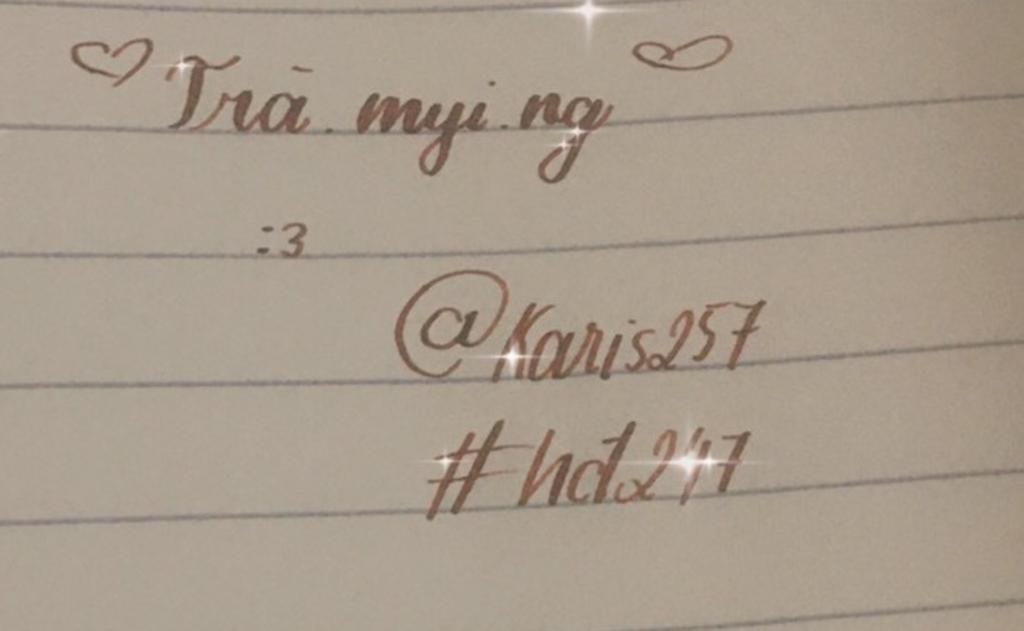 ♡ Trà.myi.ng ♡
:3
@Karis257
#hd247